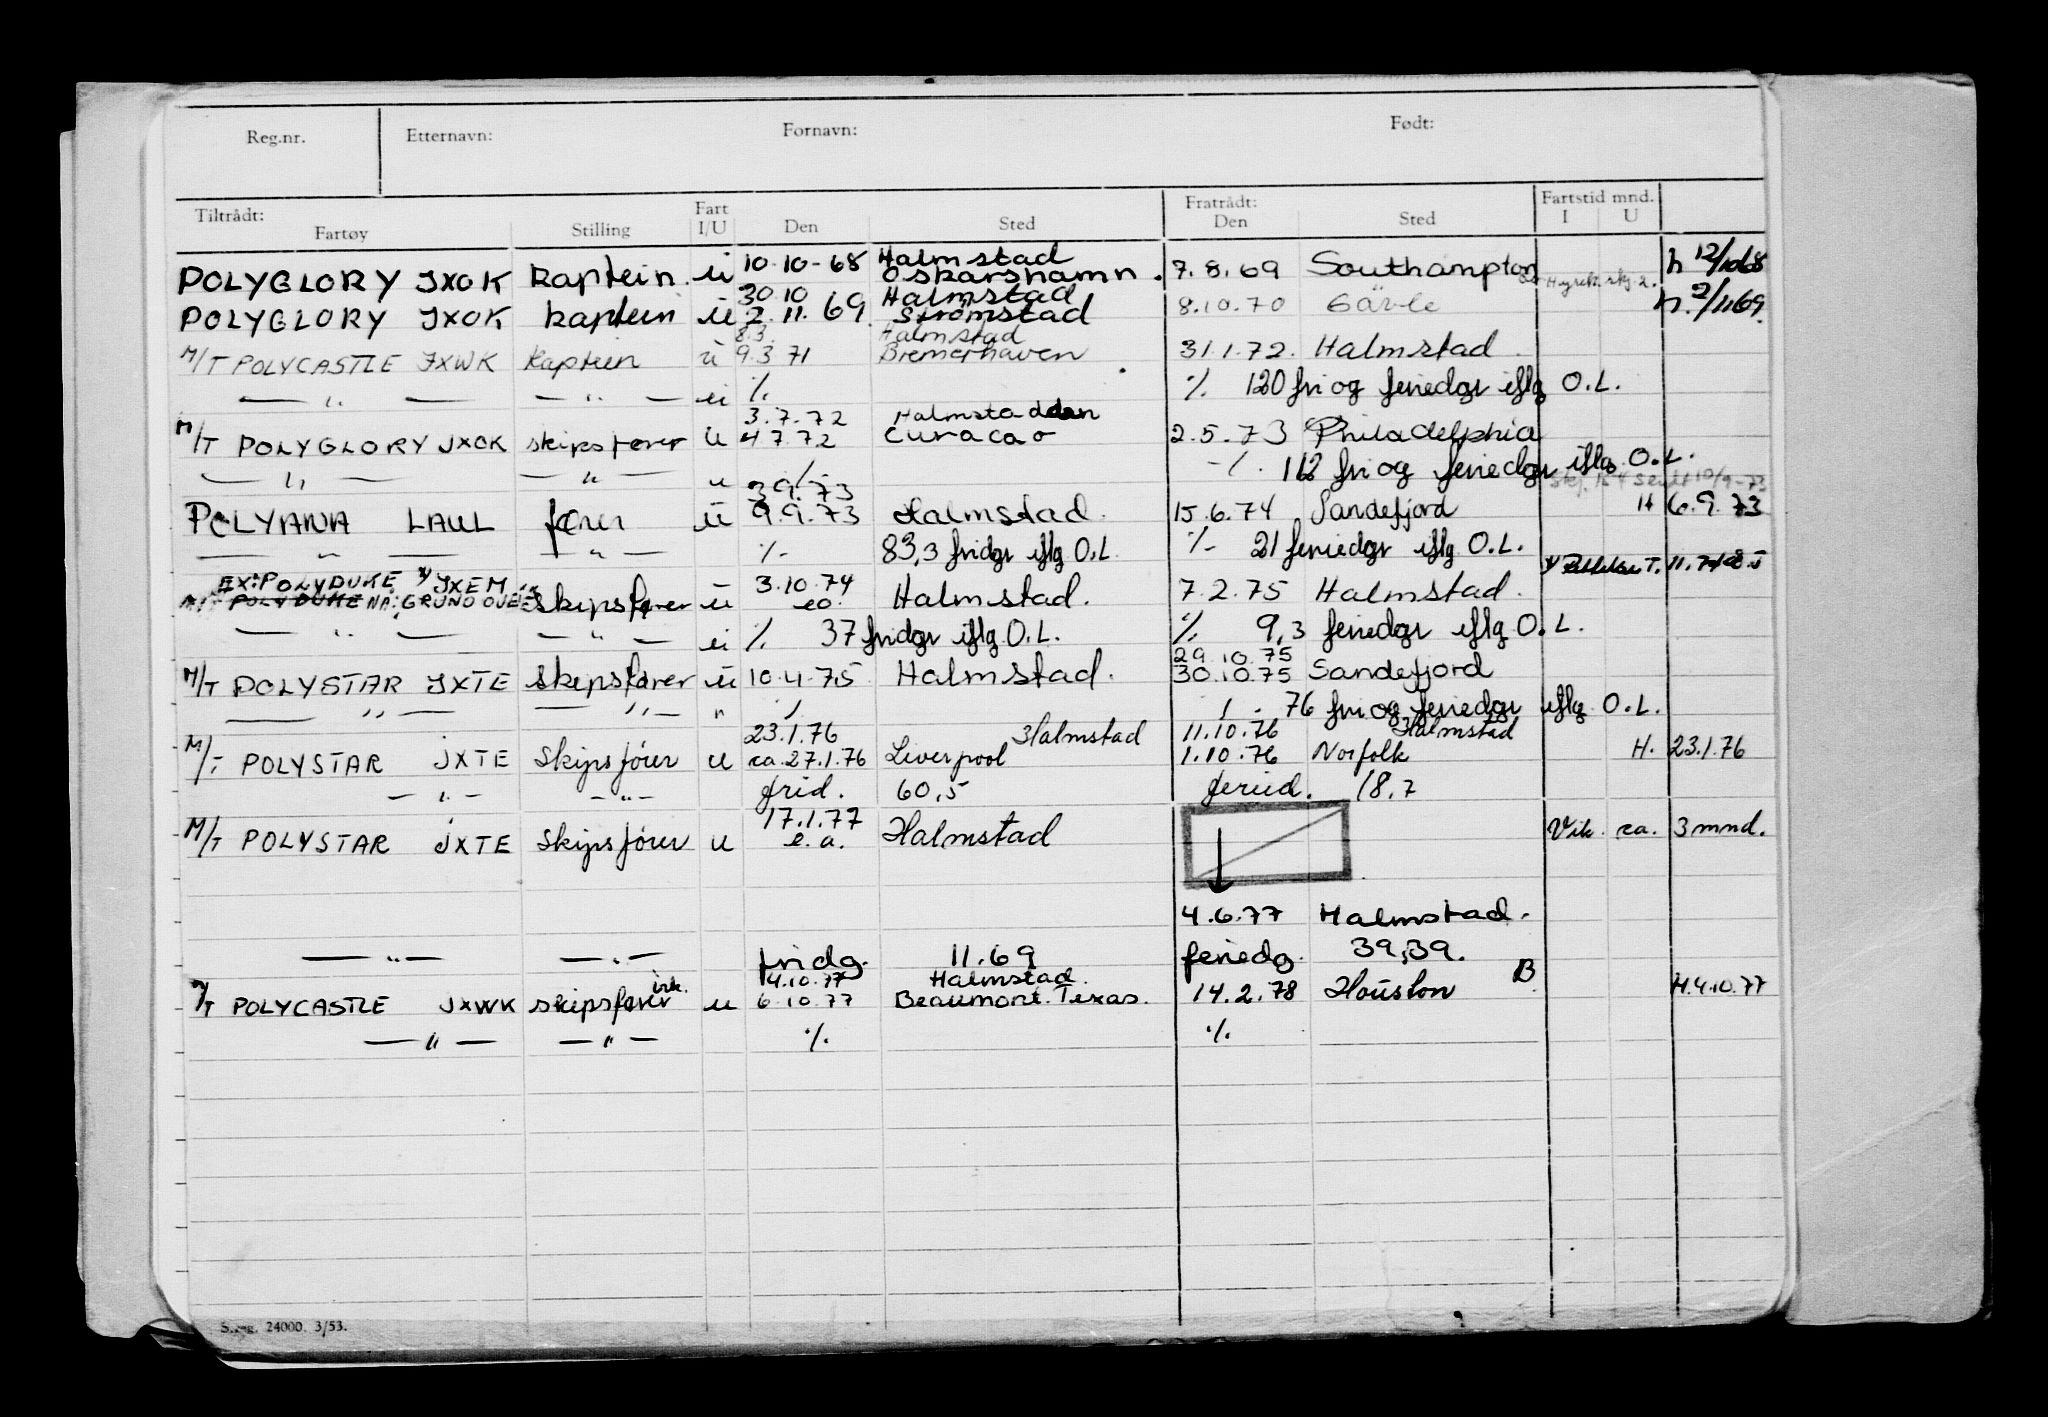 Reg.nr. Etternavn: Fornavn: Født:
Tiltrådt: Fart Fratrådt: Fartstid mnd.
Fartøy Stilling I/U Den Sted Den Sted I U
10.10-68 Halmstad
POLYGLORY JXOK kaptein ü Oskarshamn. 7.8.69 Southampton h 12/10 68
30.10 Halmstad
POLYGLORY JXOK kaptein ü 2.11.69 Strömstad 8.10.70 Gävle h. 2/11 69.
8.3. Halmstad
M/T POLYCASTLE JXWK kaptein ü 9.3 71 Bremerhaven 31.1.72. Halmstad
— " — — " — ü % % 120 fri og feriedgr iflg O.L.
3.7.72 Halmstad
M/T POLYGLORY JXOK skipsfører ü 4.7.72 Curacao 2.5.73 Philadelphia
— " — — " — u -/- -/. 112 fri og feriedgr iflg. O.L.
3.9.73
POLYANA LAUL fører ü 9.9.73 Halmstad. 15.6.74 Sandefjord H 6.9.73
— " — — " — % 83,3 fridgr iflg O.L. % 21 feriedgr iflg O.L.
EX: POLYDUKE JXEM 3.10.74
M/T POLYDUKE NÅ: skipsfører ü eo. Halmstad. 7.2.75 Halmstad.
— " — — " — ü % 37 fridgr iflg O.L. % 9,3 feriedgr iflg O.L.
29.10.75
M/T POLYSTAR JXTE skipsfører ü 10.4.75 Halmstad. 30.10.75 Sandefjord
— " — — " — " /. /. 76 fri og feriedgr iflg. O.L.
23.1.76 Halmstad 11.10.76 Halmstad
M/T POLYSTAR JXTE Skipsfører u ca. 27.1.76 Liverpool 1.10.76 Norfolk H. 23.1.76
— " — — " — frid. 60,5 feried. 18,7
17.1.77
M/T POLYSTAR JXTE Skipsfører u e.a. Halmstad Vik. ca. 3 mnd.
4.6.77 Halmstad.
— " — — " — fridg. 11.69 feriedg. 39,39.
4.10.77 Halmstad. B
M/T POLYCASTLE JXWK skipsfører vik. u 6.10.77 Beaumont. Texas. 14.2.78 Houston H.4.10.77
— " — — " — % %
24000. 3/53.